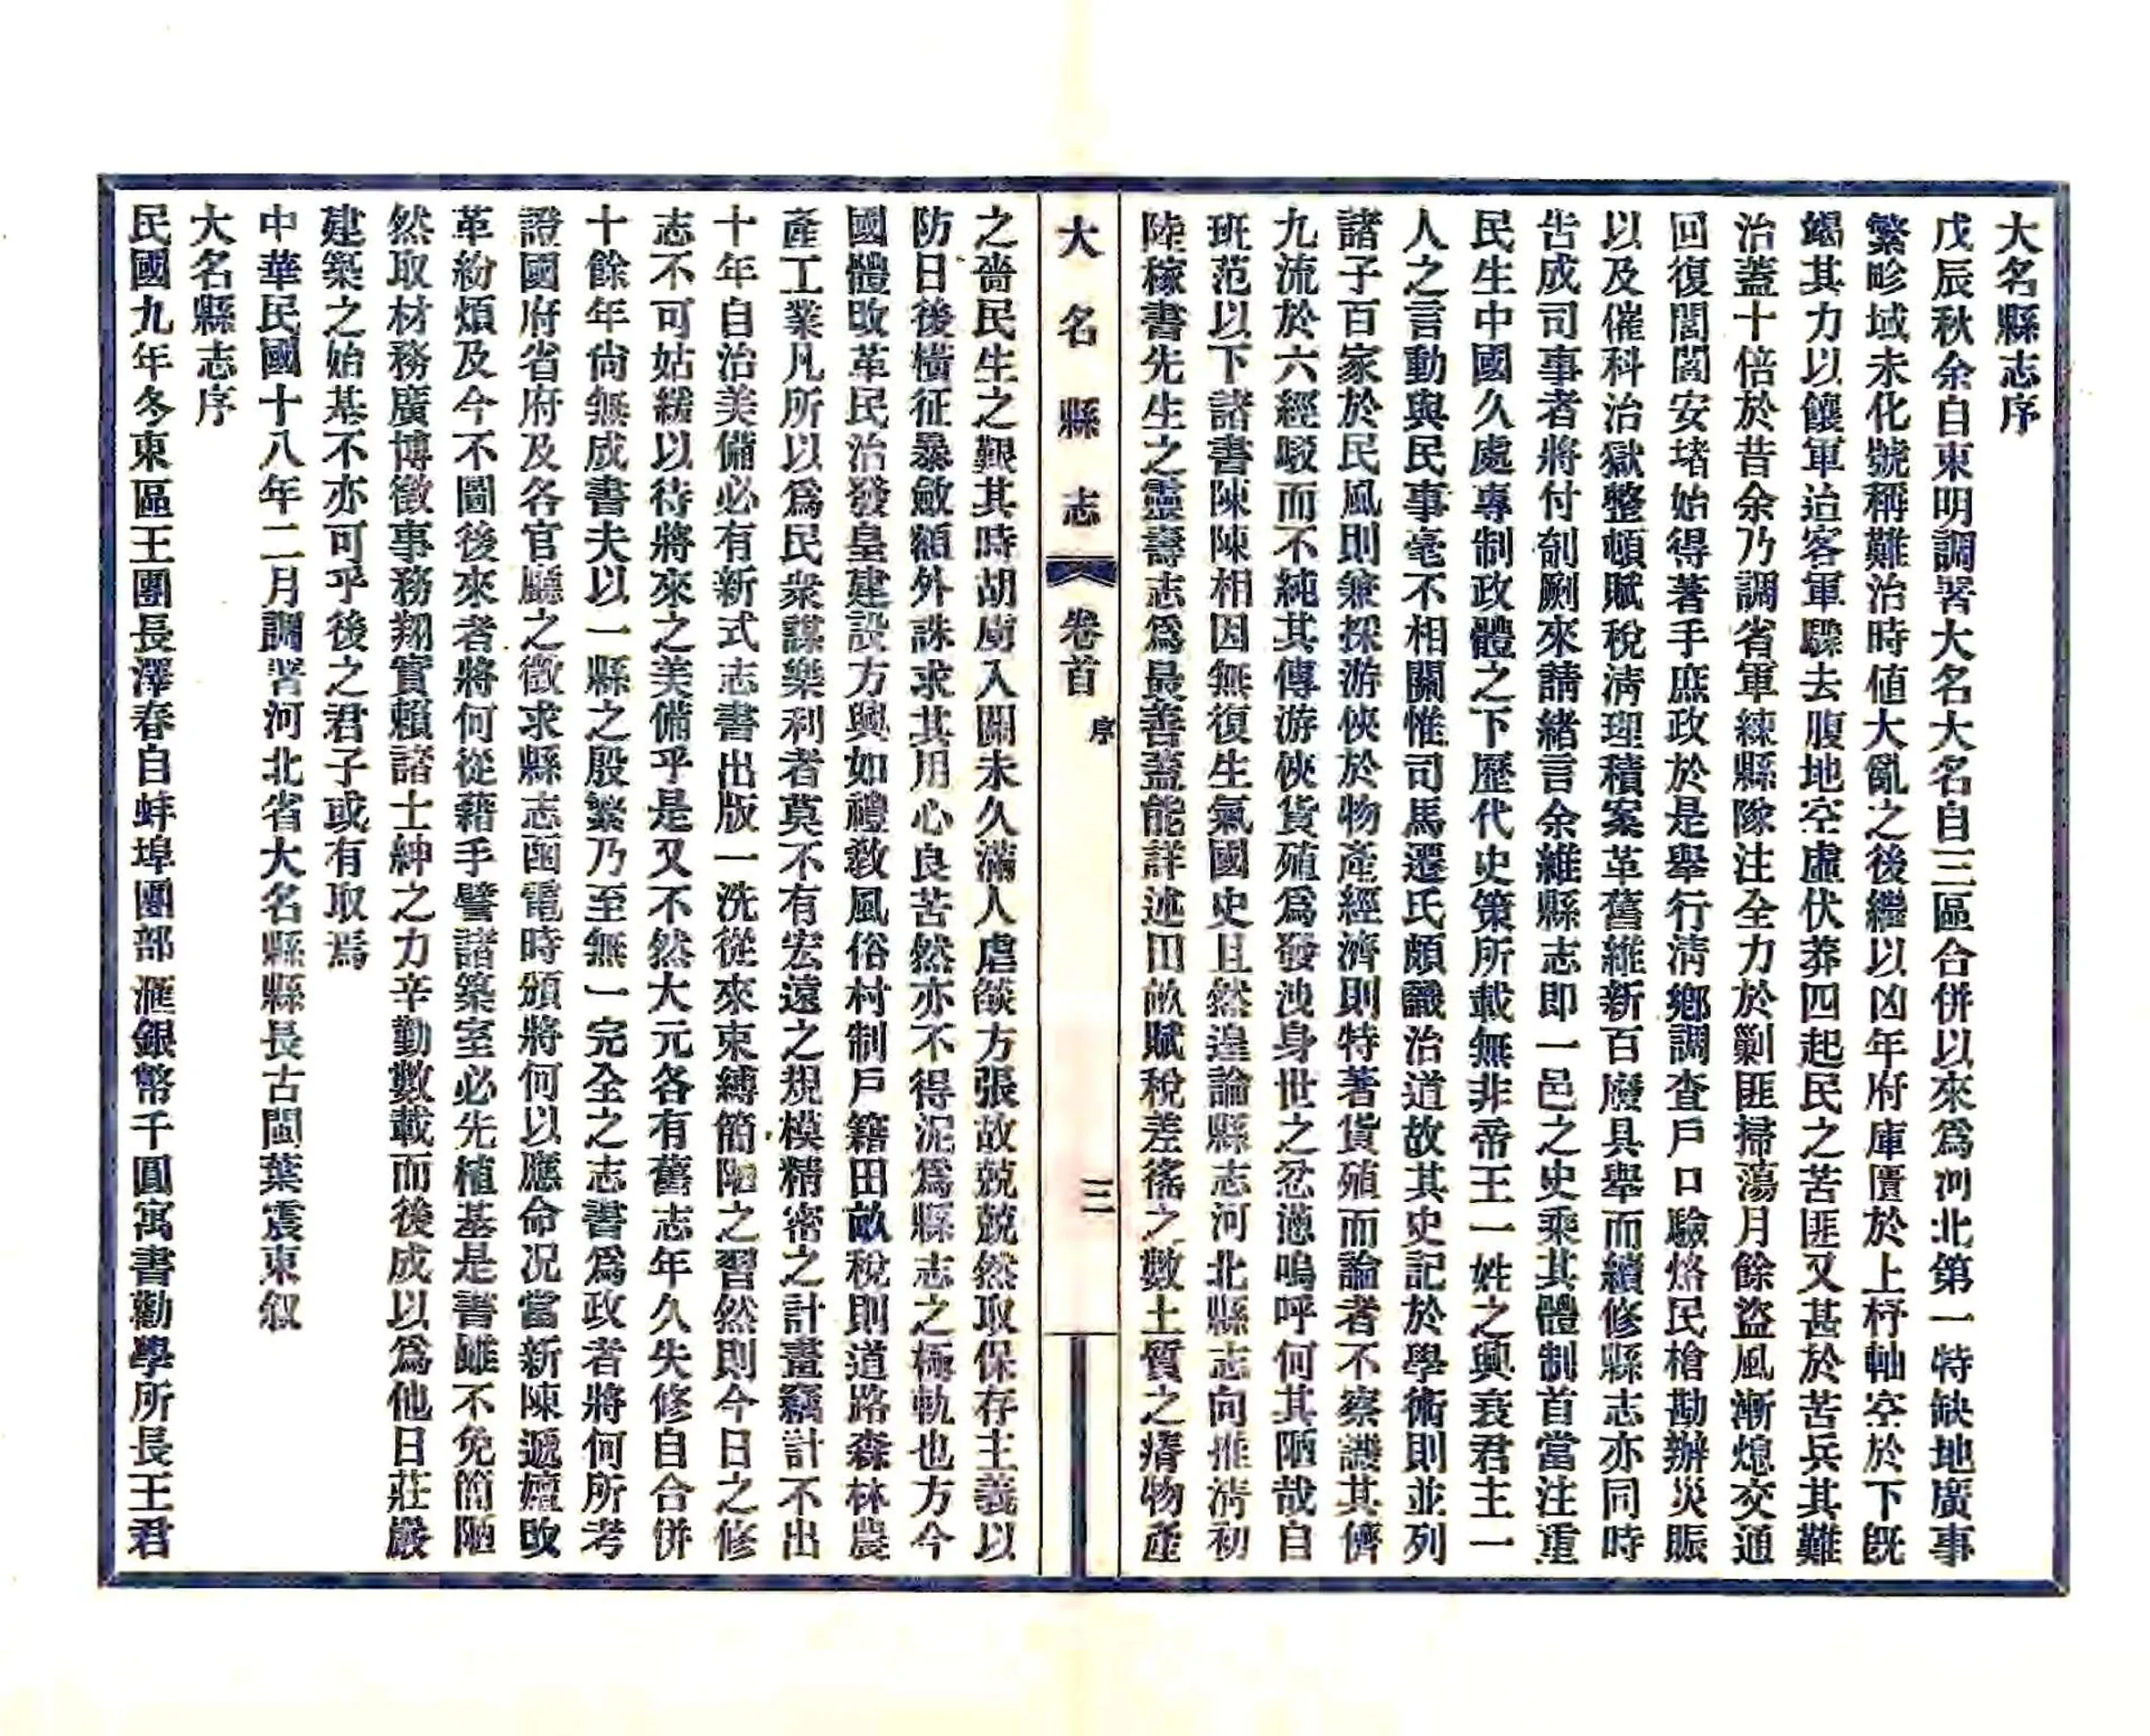 大名縣志序
戊辰秋余自東明調署大名大名自三區合併以來爲河北第一特缺地廣事
繁畛域未化號稱難治時値大亂之後繼以凶年府庫匱於上杼軸空於下旣
竭其力以饟軍迨客軍驟去腹地空虛伏莽四起民之苦匪又甚於苦兵其難
治蓋十倍於昔余乃調省軍練縣隊注全力於剿匪掃蕩月餘盜風漸熄交通
回復閭閻安堵始得著手庶政於是舉行淸鄉調查戶口驗烙民槍勘辦災賑
以及催科治獄整頓賦稅淸理積案革舊維新百廢具舉而續修縣志亦同時
告成司事者將付剞劂來請緒言余維縣志卽一邑之史乘其體制首當注重
民生中國久處專制政體之下歷代史策所載無非帝王一姓之興衰君主一
人之言動與民事毫不相關惟司馬遷氏頗識治道故其史記於學術則並列
諸子百家於民風則兼採游俠於物產經濟則特著貨殖而論者不察譏其儕
九流於六經駁而不純其傳游俠貨殖爲發洩身世之忿懣嗚呼何其陋哉自
班范以下諸書陳陳相因無復生氣國史且然遑論縣志河北縣志向推淸初
陸稼書先生之靈壽志爲最善蓋能詳述田畝賦稅差徭之數土質之瘠物產
大名縣志
卷首
序
三
之嗇民生之艱其時胡虜入關未久滿人虐燄方張故兢兢然取保存主義以
防日後橫征暴斂額外誅求其用心良苦然亦不得泥爲縣志之極軌也方今
國體改革民治發皇建設方興如禮敎風俗村制戶籍田畝稅則道路森林農
產工業凡所以爲民衆謀樂利者莫不有宏遠之規模精密之計畫竊計不出
十年自治美備必有新式志書出版一洗從來束縛簡陋之習然則今日之修
志不可姑緩以待將來之美備乎是又不然大元各有舊志年久失修自合併
十餘年尙無成書夫以一縣之殷繁乃至無一完全之志書爲政者將何所考
證國府省府及各官廳之徵求縣志函電時頒將何以應命况當新陳遞嬗改
革紛煩及今不圖後來者將何從藉手譬諸築室必先植基是書雖不免簡陋
然取材務廣博徵事務翔實賴諸士紳之力辛勤數載而後成以爲他日莊嚴
建築之始基不亦可乎後之君子或有取焉
中華民國十八年二月調署河北省大名縣縣長古閩葉震東叙
大名縣志序
民國九年冬東區王團長澤春自蚌埠團部滙銀幣千圓寓書勸學所長王君